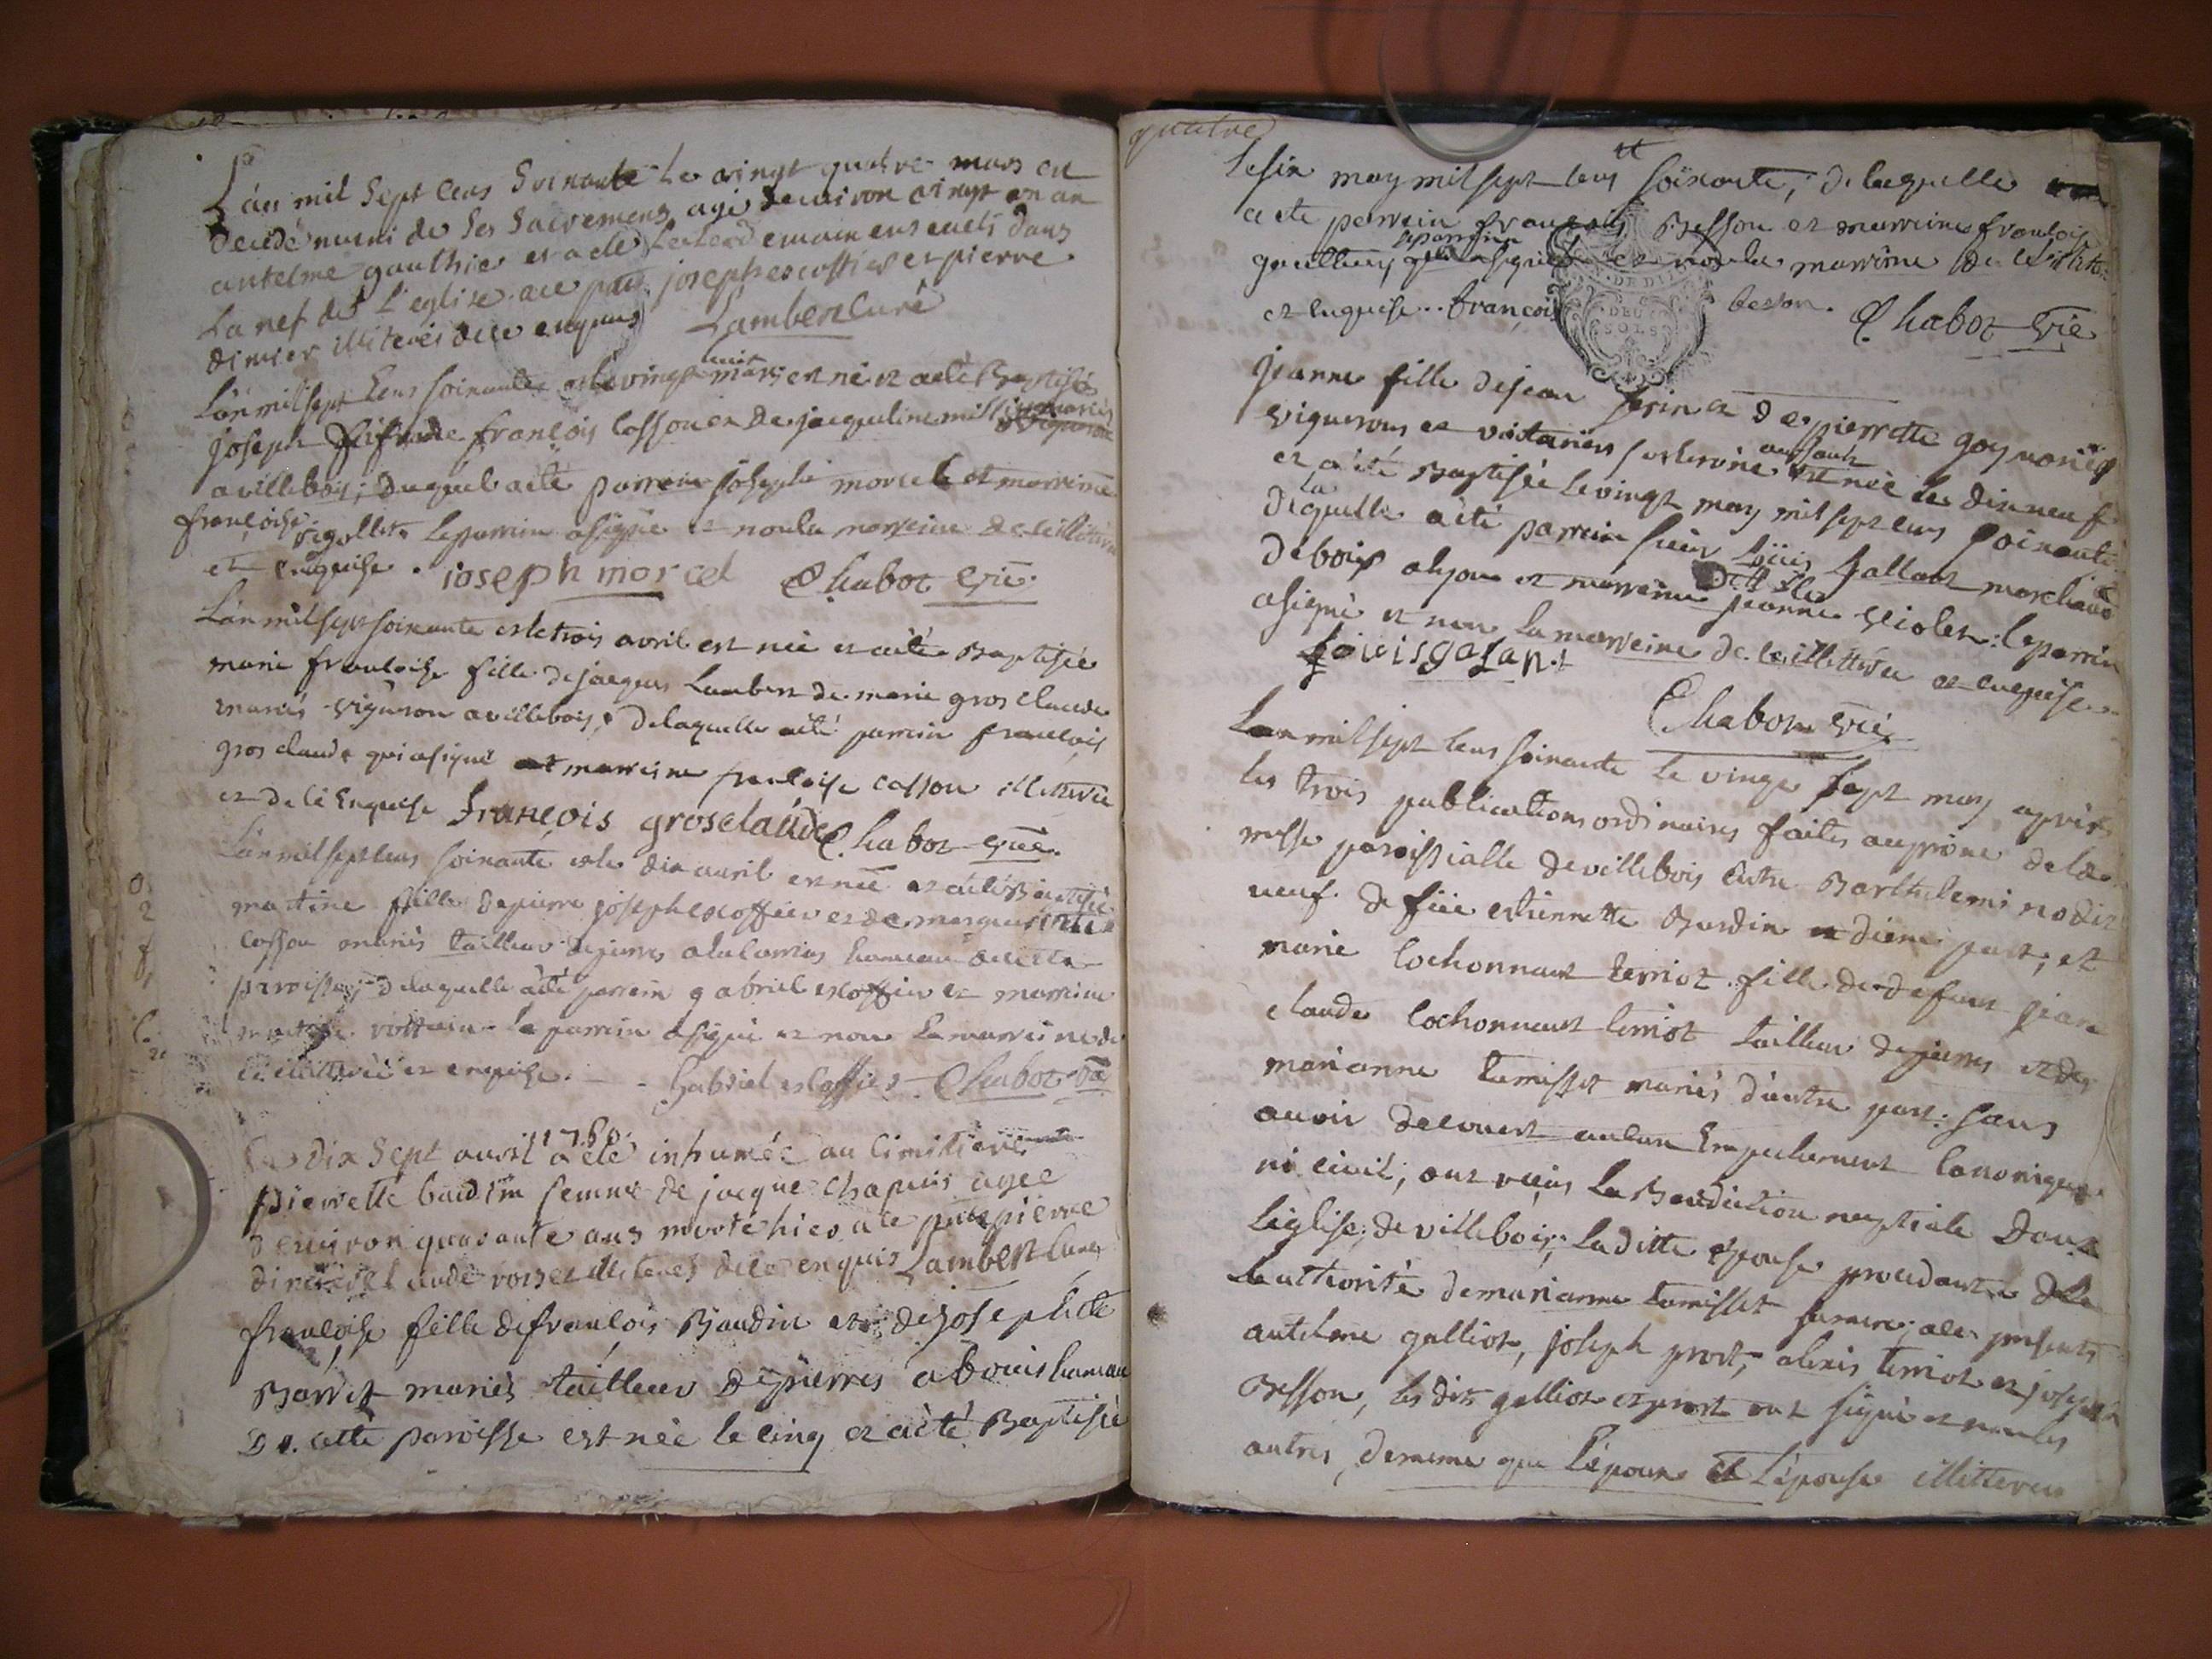 L'an mil Sept Cens Soixante Le vingt quatre mars est
decidé muni de Ses Sacremens agé denviron vingt un an
antelme gauthier et a eté Le lendemain enseveli dans
La nef de L'eglise ace pnts joseph escoffier et pierre
dinier illiterés dece enquis Lambert Curé
L'an mil sept Cens soixante et le vingt huit mars est né et a eté Baptisé
joseph fils de françois Cosson et de jacqueline mariés
a villebois; duquel a eté parrain joseph morcel et marreine
françoise rigollet Le parrein a signé et non la marreine de ce illiterée
et enquise. ioseph morcel Chabot vic.
L'an mil sept soixante et le trois avril est née et a eté Baptisée
marie françoise fille de jacques Lambert de marie gros claude
mariés vigneron a villebois, de laquelle a eté parrein françois
gros claude qui a signé et marreine françoise cosson illiterée
et de ce Enquise françois grosclaude Chabot vic.
L'an mil sept cens soixante et le dix avril est née et a eté Baptisée
martine fille de pierre joseph escoffier et de margueritte
cosson mariés tailleur de pierres hameau de cette
paroisse; de laquelle a eté parrein gabriel escoffier et marreine
le parrein a signé et non la marreine de
ce illiterée et enquise. - - Gabriel escoffier Chabot vic
Le dix Sept avril 1760 a eté inhumée au Cimitiere
pierrette baudin femme de jacque chapuis agee
denviron quarante ans morte hier a ce pnts pierre
dinier et illiterés dece enquis Lambert Curé
françoise fille de françois Baudin et de josephte
Barret mariés tailleur de pierres a bouis hameau
De cette paroisse est née le cinq et a eté Baptisée
quatre
le six may mil sept cens soixante; de laquelle
a eté parrein françois Besson et marreine françoise
le parrein a signé et non la marreine de ce illite.
et enquise.. françois besson. Chabot vic
DEUX SOLS
jeanne fille de jean et de pierrette goy mariés
vignerons et sur le rône est née le dix neuf
et a eté Baptisée le vingt may mil sept cens soixante
de la quelle a eté parrein sieur Loüis gallant marchand
de bois a lyon et marreine jeanne violet: le parrein
a signé et non la marreine de ce illitterée et enquise.
Loüis galant
Chabot vic
L'an mil sept cens soixante le vingt sept may après
les trois publications ordinaires faites au prône de la
messe paroissialle de villebois entre Barthelemi nodet
veuf de feüe estiennette Burdin d'une part, et
marie Cochonnat terriot fille de defunt jean
claude Cochonnat terriot tailleur de pierres et de
marianne tamisset mariés d'autre part: sans
avoir decouvert aucun Empechement Canonique
ni civil; ont reçus La Benediction nuptiale Dans
L'eglise de villebois; La ditte epouse procedante de
L'authorité de marianne tamisset sa mere; a ce presents
antelme galliot, joseph prost, alexis terriot et joseph
Besson, les dits galliot et prost ont signé et non les
autres, de meme que l'epoux et L'epouse illitteres